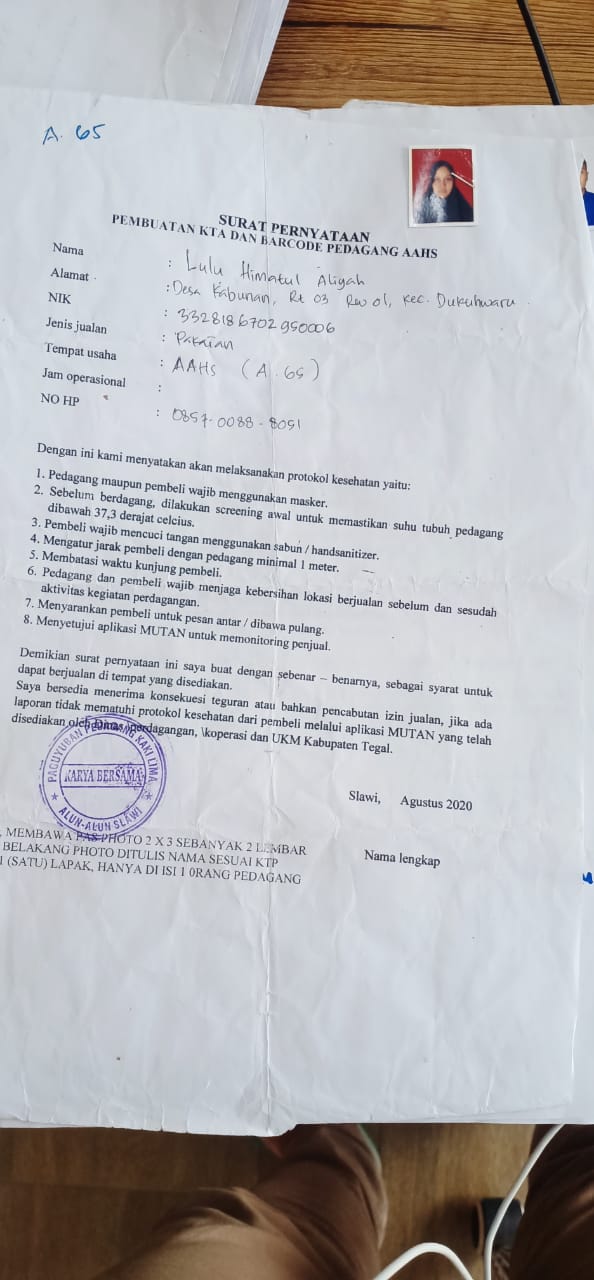 A. 65
SURAT PERNYATAAN
PEMBUATAN KTA DAN BARCODE PEDAGANG AAHS
Nama : Lulu Himatul Aliyah
Alamat : Desa Kabunan, Rt 03 Rw 01, Kec. Dukuhwaru.
NIK : 3328186702950006
Jenis jualan : Pakaian
Tempat usaha : AAHS (A. 65)
Jam operasional :
NO HP : 0857-0088-8051
Dengan ini kami menyatakan akan melaksanakan protokol kesehatan yaitu:
1. Pedagang maupun pembeli wajib menggunakan masker.
2. Sebelum berdagang, dilakukan screening awal untuk memastikan suhu tubuh pedagang
dibawah 37,3 derajat celcius.
3. Pembeli wajib mencuci tangan menggunakan sabun / handsanitizer.
4. Mengatur jarak pembeli dengan pedagang minimal 1 meter.
5. Membatasi waktu kunjung pembeli.
6. Pedagang dan pembeli wajib menjaga kebersihan lokasi berjualan sebelum dan sesudah
aktivitas kegiatan perdagangan.
7. Menyarankan pembeli untuk pesan antar / dibawa pulang.
8. Menyetujui aplikasi MUTAN untuk memonitoring penjual.
Demikian surat pernyataan ini saya buat dengan sebenar – benarnya, sebagai syarat untuk
dapat berjualan di tempat yang disediakan.
Saya bersedia menerima konsekuesi teguran atau bahkan pencabutan izin jualan, jika ada
laporan tidak mematuhi protokol kesehatan dari pembeli melalui aplikasi MUTAN yang telah
disediakan oleh Dinas perdagangan, \koperasi dan UKM Kabupaten Tegal.
PAGUYUBAN PEDAGANG KAKI LIMA
KARYA BERSAMA
ALUN-ALUN SLAWI
Slawi, Agustus 2020
MEMBAWA PAS PHOTO 2 X 3 SEBANYAK 2 LEMBAR
BELAKANG PHOTO DITULIS NAMA SESUAI KTP
1 (SATU) LAPAK, HANYA DI ISI 1 0RANG PEDAGANG
Nama lengkap